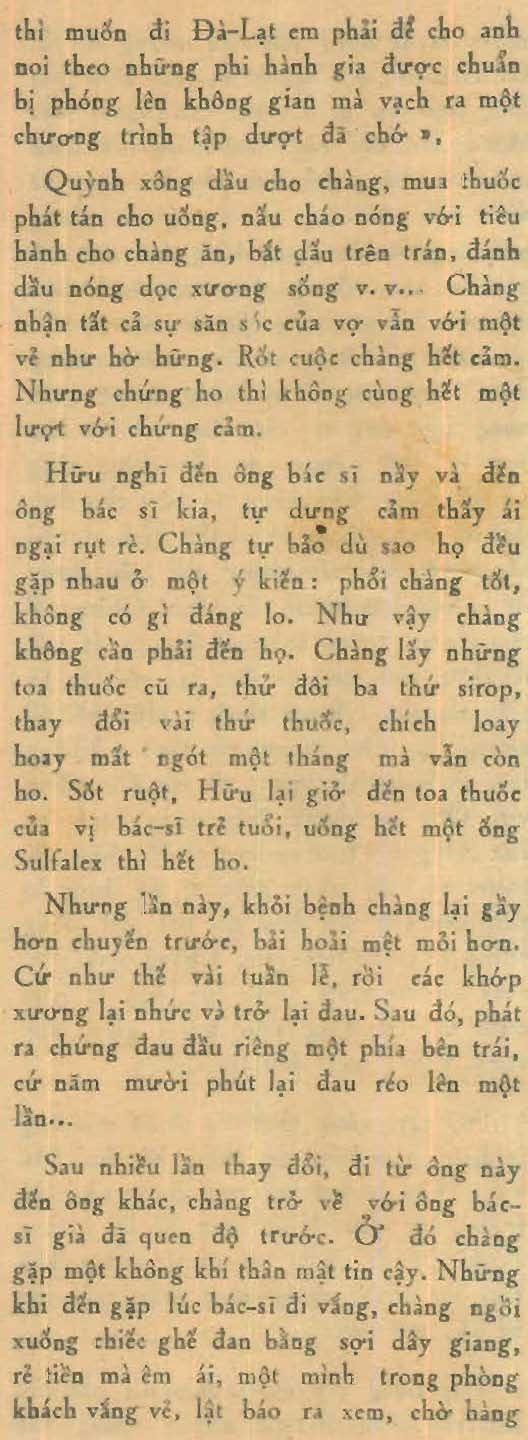 thì muốn đi Đà-Lạt em phải để cho anh
noi theo những phi hành gia được chuẩn
bị phóng lên không gian mà vạch ra một
chương trình tập dượt đã chớ ».
Quỳnh xông dầu cho chàng, mua thuốc
phát tán cho uống, nấu cháo nóng với tiêu
hành cho chàng ăn, bắt dấu trên trán, đánh
dầu nóng dọc xương sống v.v... Chàng
nhận tất cả sự săn sóc của vợ vẫn với một
vẻ như hờ hững. Rốt cuộc chàng hết cảm.
Nhưng chứng ho thì không cùng hết một
lượt với chứng cảm.
Hữu nghĩ đến ông bác sĩ nầy và đến
ông bác sĩ kia, tự dưng cảm thấy ái
ngại rụt rè. Chàng tự bảo dù sao họ đều
gặp nhau ở một ý kiến: phổi chàng tốt,
không có gì đáng lo. Như vậy chàng
không cần phải đến họ. Chàng lấy những
toa thuốc cũ ra, thử đôi ba thứ sirop,
thay đổi vài thứ thuốc, chích loay
hoay mất ngót một tháng mà vẫn còn
ho. Sốt ruột, Hữu lại giở đến toa thuốc
của vị bác-sĩ trẻ tuổi, uống hết một ống
Sulfalex thì hết ho.
Nhưng lần này, khỏi bệnh chàng lại gầy
hơn chuyến trước, bải hoải mệt mỏi hơn.
Cứ như thế vài tuần lễ, rồi các khớp
xương lại nhức và trở lại đau. Sau đó, phát
ra chứng đau đầu riêng một phía bên trái,
cứ năm mười phút lại đau réo lên một
lần...
Sau nhiều lần thay đổi, đi từ ông này
đến ông khác, chàng trở về với ông bác-
sĩ già đã quen độ trước. Ở đó chàng
gặp một không khí thân mật tin cậy. Những
khi đến gặp lúc bác-sĩ đi vắng, chàng ngồi
xuống chiếc ghế đan bằng sợi dây giang,
rẻ tiền mà êm ái, một mình trong phòng
khách vắng vẻ, lật báo ra xem, chờ hàng